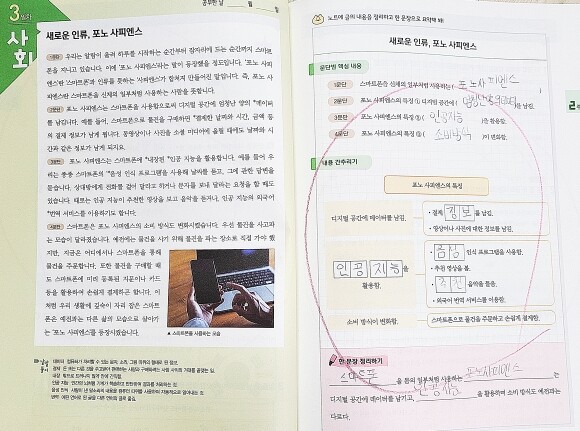 3주차
사회
공부한 날 월 일
새로운 인류, 포노 사피엔스
1문단 우리는 알람이 울려 하루를 시작하는 순간부터 잠자리에 드는 순간까지 스마트
폰을 지니고 있습니다. 이에 '포노 사피엔스'라는 말이 등장했을 정도입니다. '포노 사피
엔스'란 '스마트폰'과 인류를 뜻하는 '사피엔스'가 합쳐져 만들어진 말입니다. 즉, 포노 사
피엔스란 스마트폰을 신체의 일부처럼 사용하는 사람을 뜻합니다.
2문단 포노 사피엔스는 스마트폰을 사용함으로써 디지털 공간에 엄청난 양의 "데이터
를 남깁니다. 예를 들어, 스마트폰으로 물건을 구매하면 "결제한 날짜와 시간, 금액 등
의 결제 정보가 남게 됩니다. 동영상이나 사진을 소셜 미디어에 올릴 때에도 날짜와 시
간과 같은 정보가 남게 되지요.
3문단 포노 사피엔스는 스마트폰에 "내장된 "인공 지능을 활용합니다. 예를 들어 우
리는 종종 스마트폰의 "음성 인식 프로그램을 사용해 날씨를 묻고, 그에 관한 답변을
듣습니다. 상대방에게 전화를 걸어 달라고 하거나 문자를 보내 달라는 요청을 할 때도
있습니다. 때로는 인공 지능이 추천한 영상을 보고 음악을 듣거나, 인공 지능의 외국어
"번역 서비스를 이용하기도 합니다.
4문단 포노 사피엔스는 스마트폰의 소비 방식도 변화시켰습니다. 우선 물건을 사고파
는 모습이 달라졌습니다. 예전에는 물건을 사기 위해 물건을 파는 장소로 직접 가야 했
지만, 지금은 어디에서나 스마트폰을 통해
물건을 주문합니다. 또한 물건을 구매할 때
도 스마트폰에 미리 등록된 지문이나 카드
등을 활용하여 손쉽게 결제하곤 합니다. 이
처럼 우리 생활에 깊숙이 자리 잡은 스마트
폰은 예전과는 다른 삶의 모습으로 살아가
는 '포노 사피엔스'를 등장시켰습니다.
▲ 스마트폰을 사용하는 모습
노트에 글의 내용을 정리하고 한 문장으로 요약해 봐!
새로운 인류, 포노 사피엔스
문단별 핵심 내용
1문단 스마트폰을 신체의 일부처럼 사용하는 ( 포노사피엔스 )
2문단 포노 사피엔스의 특징 ① 디지털 공간에 ( ) 를 남김.
3문단 포노 사피엔스의 특징 ② ( 인공지능 )을 활용함.
4문단 포노 사피엔스의 특징 ③ ( 소비방식 )이 변화함.
내용 간추리기
포노 사피엔스의 특징
디지털 공간에 데이터를 남김.
• 결제 정보 를 남김.
• 영상이나 사진에 대한 정보를 남김.
인공지능 을
활용함.
• 음성 인식 프로그램을 사용함.
• 추천 영상을 봄.
• 추천 음악을 들음.
• 외국어 번역 서비스를 이용함.
소비 방식이 변화함.
스마트폰으로 물건을 주문하고 손쉽게 결제함.
한 문장 정리하기
스마트폰 을 몸의 일부처럼 사용하는 포노사피엔스 는
디지털 공간에 데이터를 남기고, 인공지능 을 활용하며 소비 방식도 예전과는
다르다.